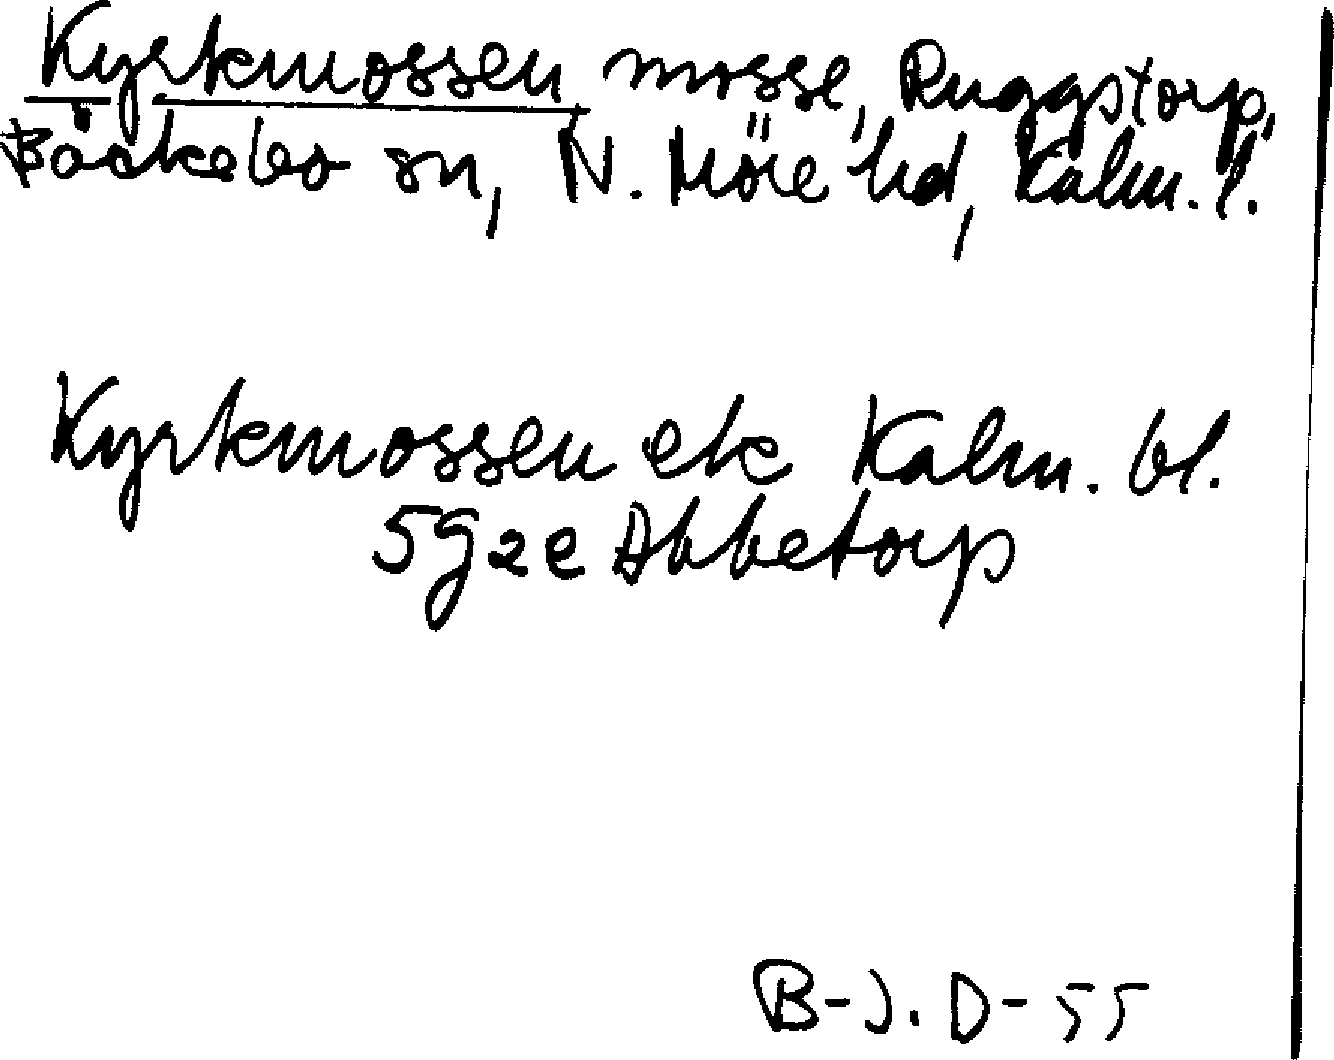 Kyrkmossen, mosse, Ruggstorp,
Bäckebo sn, N. Möre hd, Kalm. l.
Kyrkmossen ek Kalm. bl.
5g2e Abbetorp
B-J. D- 55